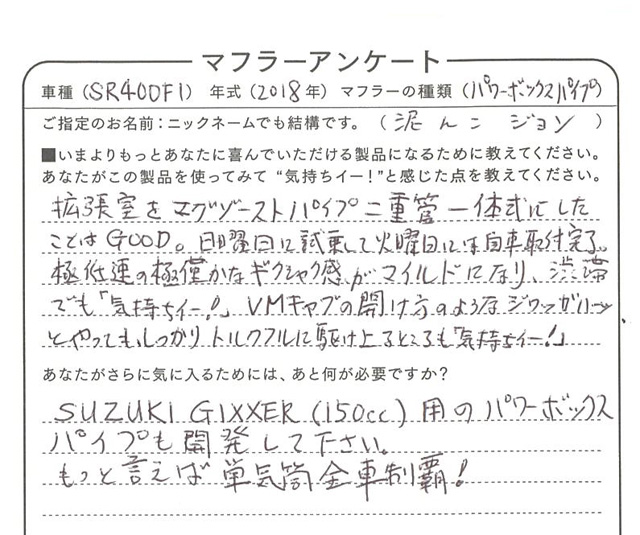 マフラーアンケート
車種（SR400FI） 年式（2018年） マフラーの種類（パワーボックスパイプ）
ご指定のお名前：ニックネームでも結構です。（泥んこ ジョン）
■いまよりもっとあなたに喜んでいただける製品になるために教えてください。
あなたがこの製品を使ってみて“気持ちイー！”と感じた点を教えてください。
拡張室をエグゾーストパイプ二重管一体式にした
ことはGOOD。日曜日に試乗して火曜日には自車取付完了。
極低速の極僅かなギクシャク感がマイルドになり、渋滞
でも「気持ちイー！」 VMキャブの開け方のようなジワッがハーッ
とやっても、しっかりトルクフルに駆け上るところも「気持ちイー！」
あなたがさらに気に入るためには、あと何が必要ですか？
SUZUKI GIXXER（150cc）用のパワーボックス
パイプも開発して下さい。
もっと言えば単気筒全車制覇！